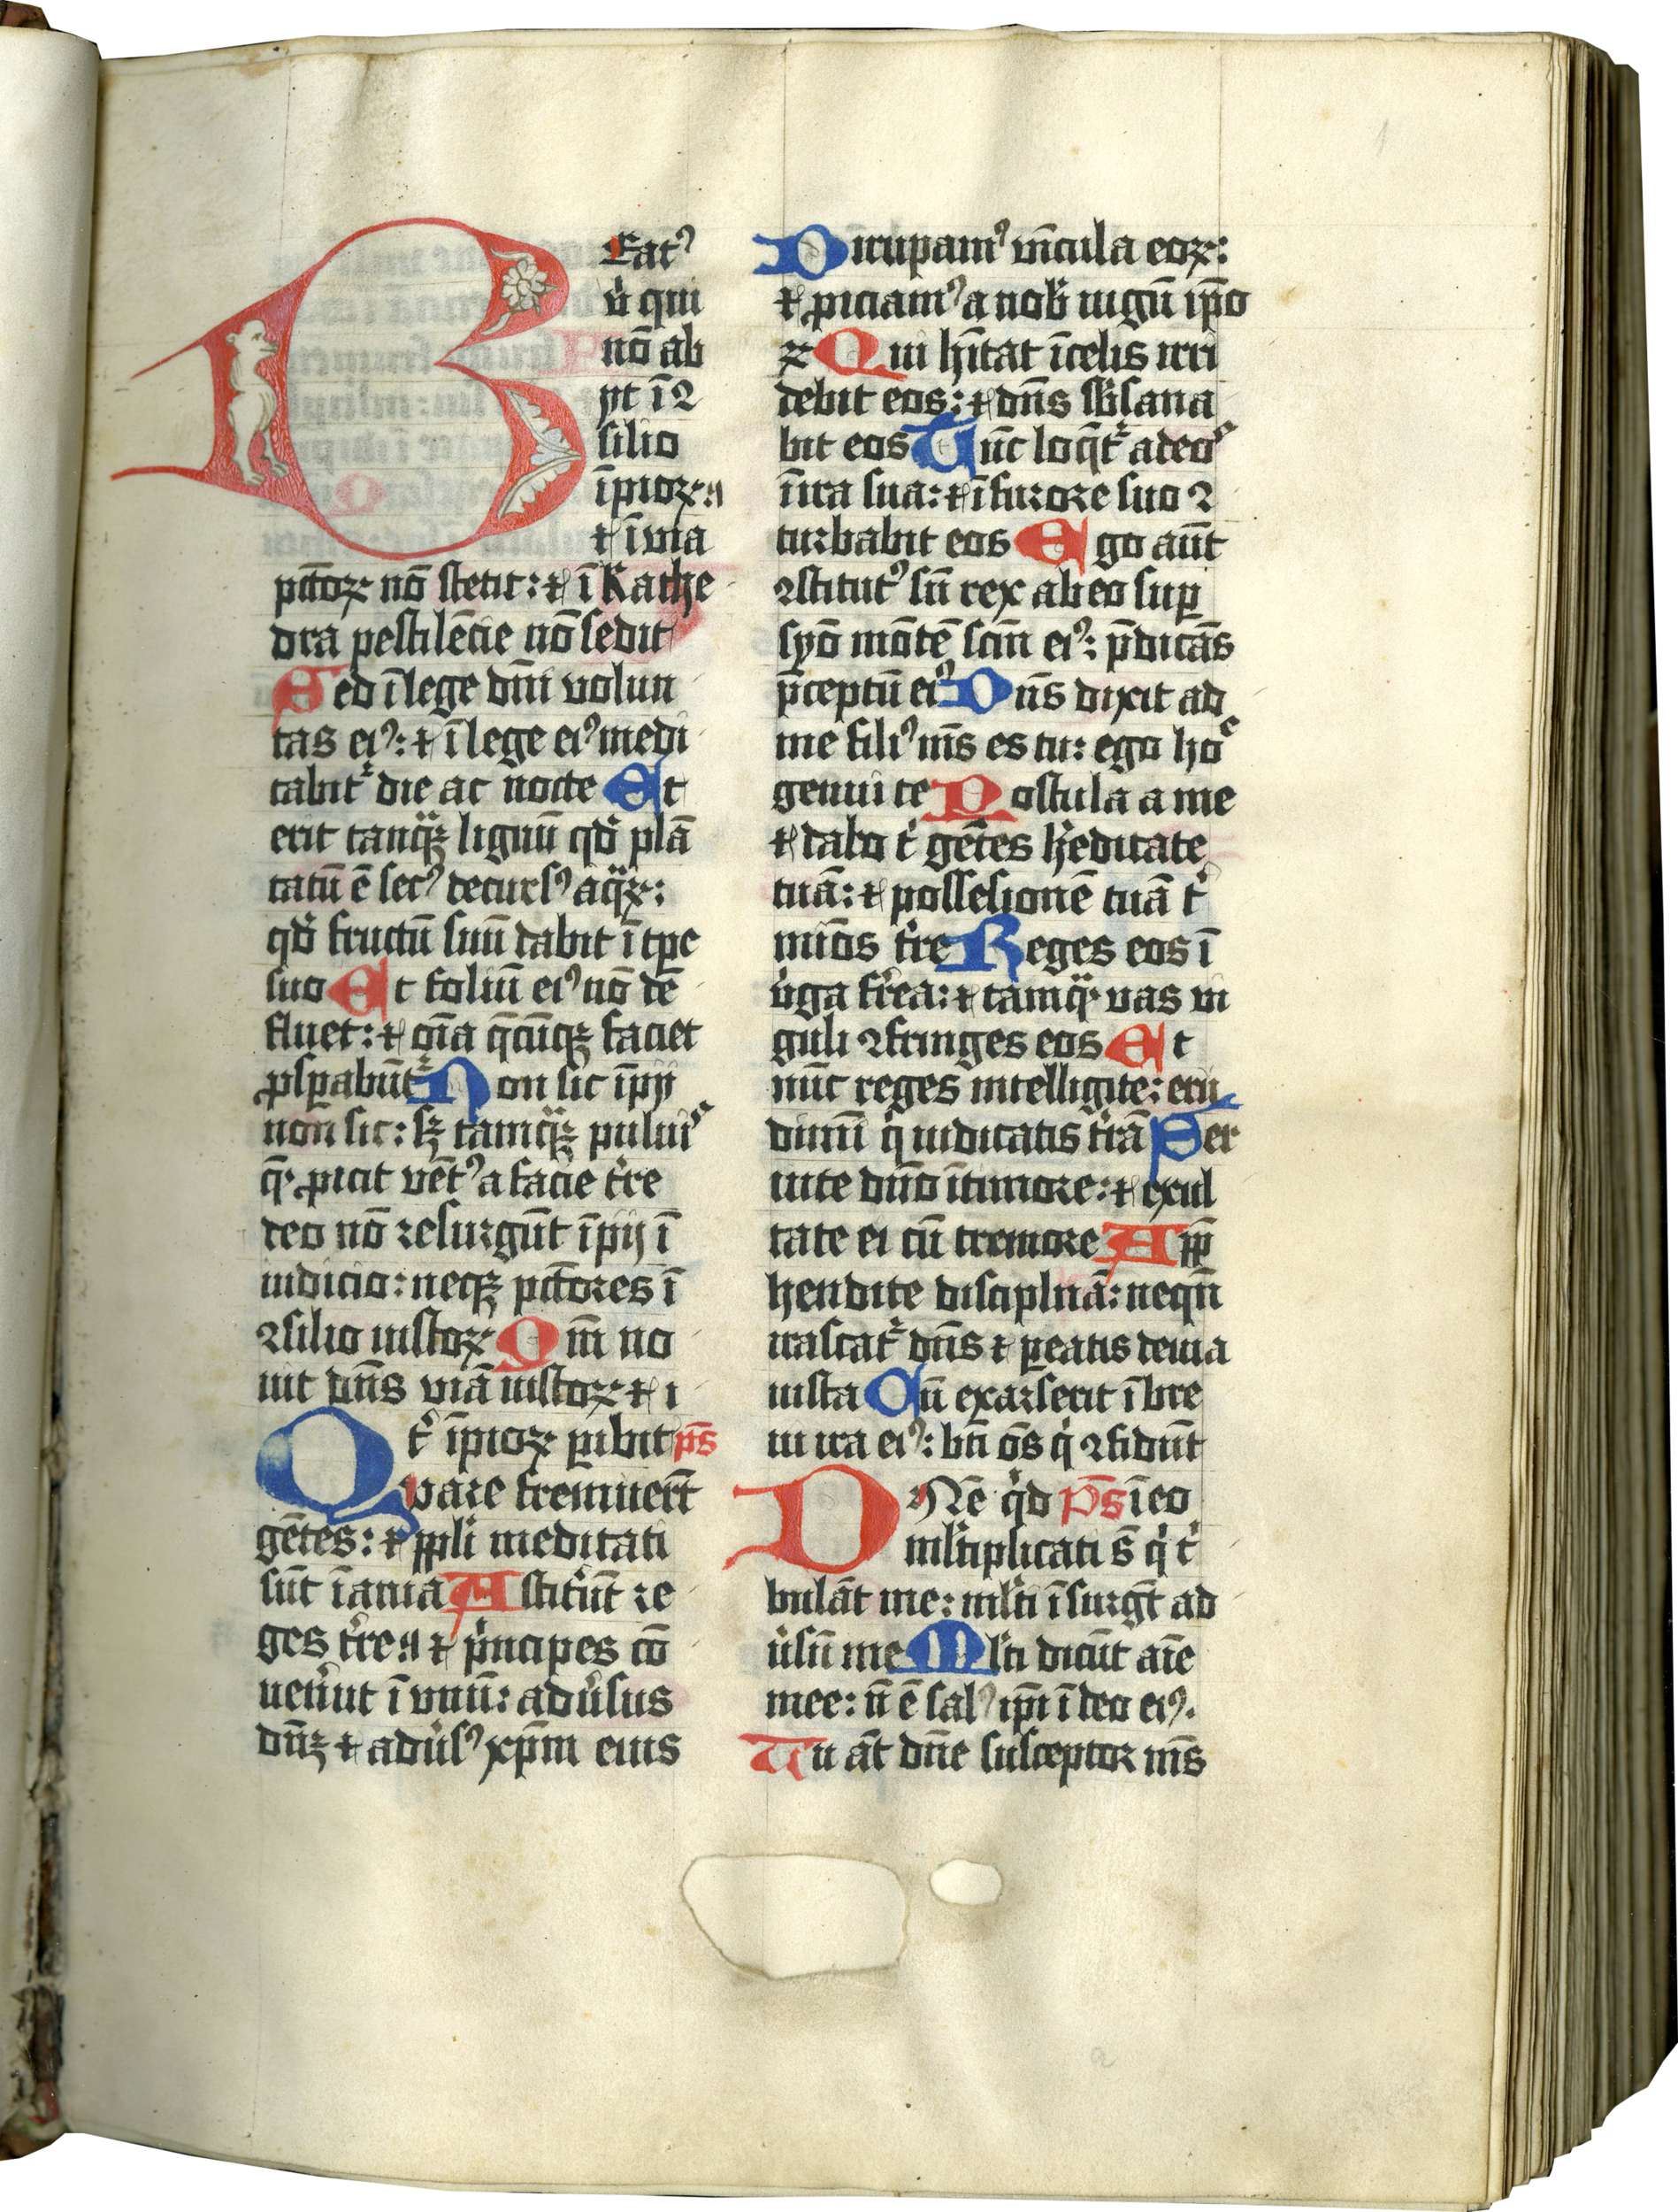 BEat᷒
v̓ qui
nō ab
ijt ī ꝯ
silio
īpioꝝ ·:
⁊ ī via
pc̄toꝝ nō stetit: ⁊ ī kathe
dra pestilēcie nō sedit
Sed ī lege dn̄i volun
tas ei᷒: ⁊ ī lege ei᷒ medi
tabit᷑ die ac nocte Et
erit tanqᷓꝫ lignū qd̓ plā
tatū ē sec᷒ decurs᷒ aqᷓꝝ:
qd̓ fructū suū dabit ī tp̄e
suo Et foliū ei᷒ nō de
fluet: ⁊ oīa q̄cūqꝫ faciet
ꝓsꝑabūt᷑ Non sic īpij
non sic: sꝫ tamqᷓꝫ pului᷒
q̄ ꝓicit vēt᷒ a facie t̓re
Ideo nō resurgūt īpij ī
iudicio: neqꝫ pc̄tores ī
ꝯsilio iustoꝝ Qm̄ no
uit dn̄s viā iustoꝝ ⁊ i
t̓ īpioꝝ ꝑibit ps̄
Quare fremuer̄t
gētes: ⁊ ppl̓i meditati
sūt īania Astit̓ūt re
ges t̓re ·: ⁊ p̓ncipes cō
uen̓ut ī vnū: adu̓sus
dn̄ꝫ ⁊ adu̓s᷒ xp̄m eius
Dirupam᷒ vīcula eoꝝ:
⁊ ꝓiciam᷒ a nob̓ iugū ip̄o
ꝝ Qui hīt̄at ī celis irri
debit eos: ⁊ dn̄s sb̓sana
bit eos Tūc loq̄t᷑ ad eo᷒
ī ira sua: ⁊ ī furore suo ꝯ
turbabit eos Ego aūt
ꝯstitut᷒ sū rex ab eo suꝑ
syō mōtē scm̄ ei᷒: p̄dicās
p̄ceptū ei᷒ Dn̄s dixit ad
me fili᷒ ms̄ es tu: ego ho᷒
genui te Postula a me
⁊ dabo t̓ gētes h̓editatē
tuā: ⁊ possesionē tuā t̓
mīos t̓re Reges eos ī
v̓ga f̓rea: ⁊ tamqᷓ vas fi
guli ꝯfringes eos Et
nūc reges intelligite: eru
dimī q̓ iudicatis t̓rā Ser
uite dn̄o ī timore: ⁊ exul
tate ei cū tremore App̄
hendite disciplīnā: neqn̄
irascat᷑ dn̄s ⁊ ꝑeatis de via
iusta Cū exarserit ī bre
ui ira ei᷒: bt̄i ōs q̓ ꝯfidūt
DNē q̓d Ps̄ ī eo
ml̓tiplicati s̄ q̓ t̓
bulāt me: ml̓ti īsurgt̄ ad
u̓sū me Ml̓ti dicūt aīe
mee: n̄ ē sal᷒ ip̄i ī deo ei᷒.
Tu āt dn̄e susceptor ms̄